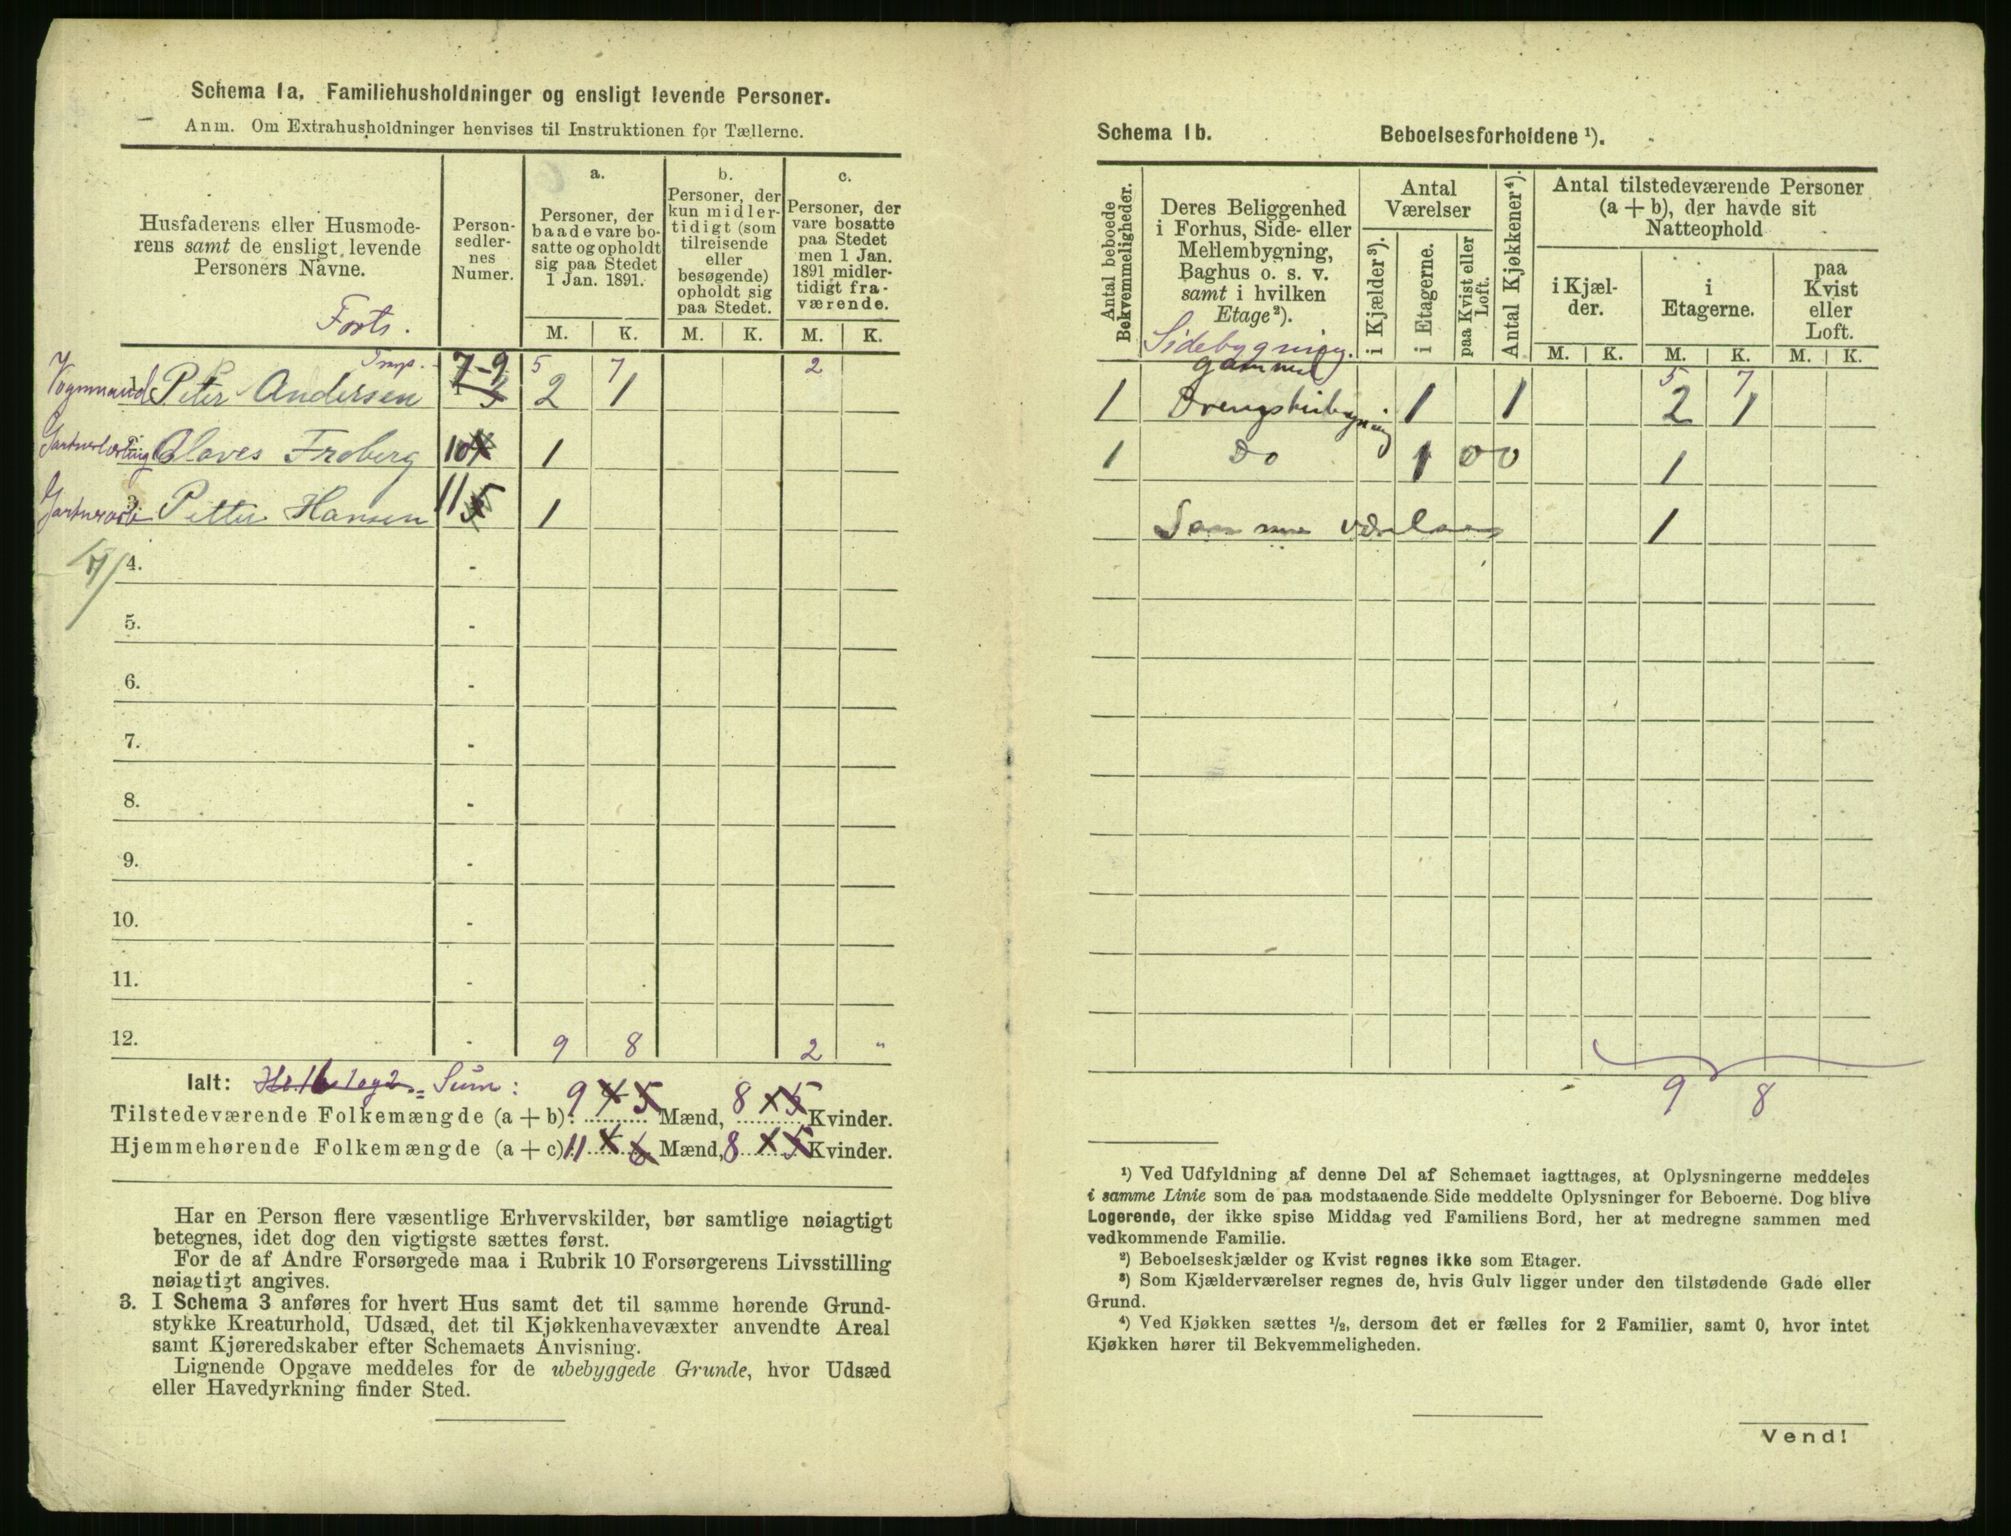 Schema 1a. Familiehusholdninger og ensligt levende Personer.
Anm. Om Extrahusholdninger henvises til Instruktionen for Tællerne.
Husfaderens eller Husmode-
rens samt de ensligt levende
Personers Navne.
Forts.
Person-
sedler-
nes
Numer.
a.
Personer, der
baade vare bo-
satte og opholdt
sig paa Stedet
1 Jan. 1891.
b.
Personer, der
kun midler-
tidigt (som
tilreisende
eller
besøgende)
opholdt sig
paa Stedet.
c.
Personer, der
vare bosatte
paa Stedet
men 1 Jan.
1891 midler-
tidigt fra-
værende.
M. K. M. K. M. K.
Trsp. 5 7 2
Peter Andersen 7-9 2 1
Olaves Froberg 10 1
3. Petter Hansen 11 1
4. -
5. -
6. -
7. -
8. -
9. -
10. -
11. -
12. - 9 8 2 "
Ialt: Sum:
Tilstedeværende Folkemængde (a + b): 9 Mænd, 8 Kvinder.
Hjemmehørende Folkemængde (a + c) 11 Mænd, 8 Kvinder.
Har en Person flere væsentlige Erhvervskilder, bør samtlige nøiagtigt
betegnes, idet dog den vigtigste sættes først.
For de af Andre Forsørgede maa i Rubrik 10 Forsørgerens Livsstilling
nøiagtigt angives.
3. I Schema 3 anføres for hvert Hus samt det til samme hørende Grund-
stykke Kreaturhold, Udsæd, det til Kjøkkenhavevæxter anvendte Areal
samt Kjøreredskaber efter Schemaets Anvisning.
Lignende Opgave meddeles for de ubebyggede Grunde, hvor Udsæd
eller Havedyrkning finder Sted.
Schema 1b. Beboelsesforholdene ¹).
Antal beboede
Bekvemmeligheder.
Deres Beliggenhed
i Forhus, Side- eller
Mellembygning,
Baghus o. s. v.
samt i hvilken
Etage²).
Sidebygning.
Antal
Værelser
i Kjælder³).
i Etagerne.
paa Kvist eller
Loft.
Antal Kjøkkener⁴).
Antal tilstedeværende Personer
(a + b), der havde sit
Natteophold
i Kjæl-
der.
i
Etagerne.
paa
Kvist
eller
Loft.
M. K. M. K. M. K.
gammel 5 7
1 1 1 2 1
1 Do 1 0 0 1
Samme værelse 1
9 8
¹) Ved Udfyldning af denne Del af Schemaet iagttages, at Oplysningerne meddeles
i samme Linie som de paa modstaaende Side meddelte Oplysninger for Beboerne. Dog blive
Logerende, der ikke spise Middag ved Familiens Bord, her at medregne sammen med
vedkommende Familie.
²) Beboelseskjælder og Kvist regnes ikke som Etager.
³) Som Kjælderværelser regnes de, hvis Gulv ligger under den tilstødende Gade eller
Grund.
⁴) Ved Kjøkken sættes ½, dersom det er fælles for 2 Familier, samt 0, hvor intet
Kjøkken hører til Bekvemmeligheden.
Vend!